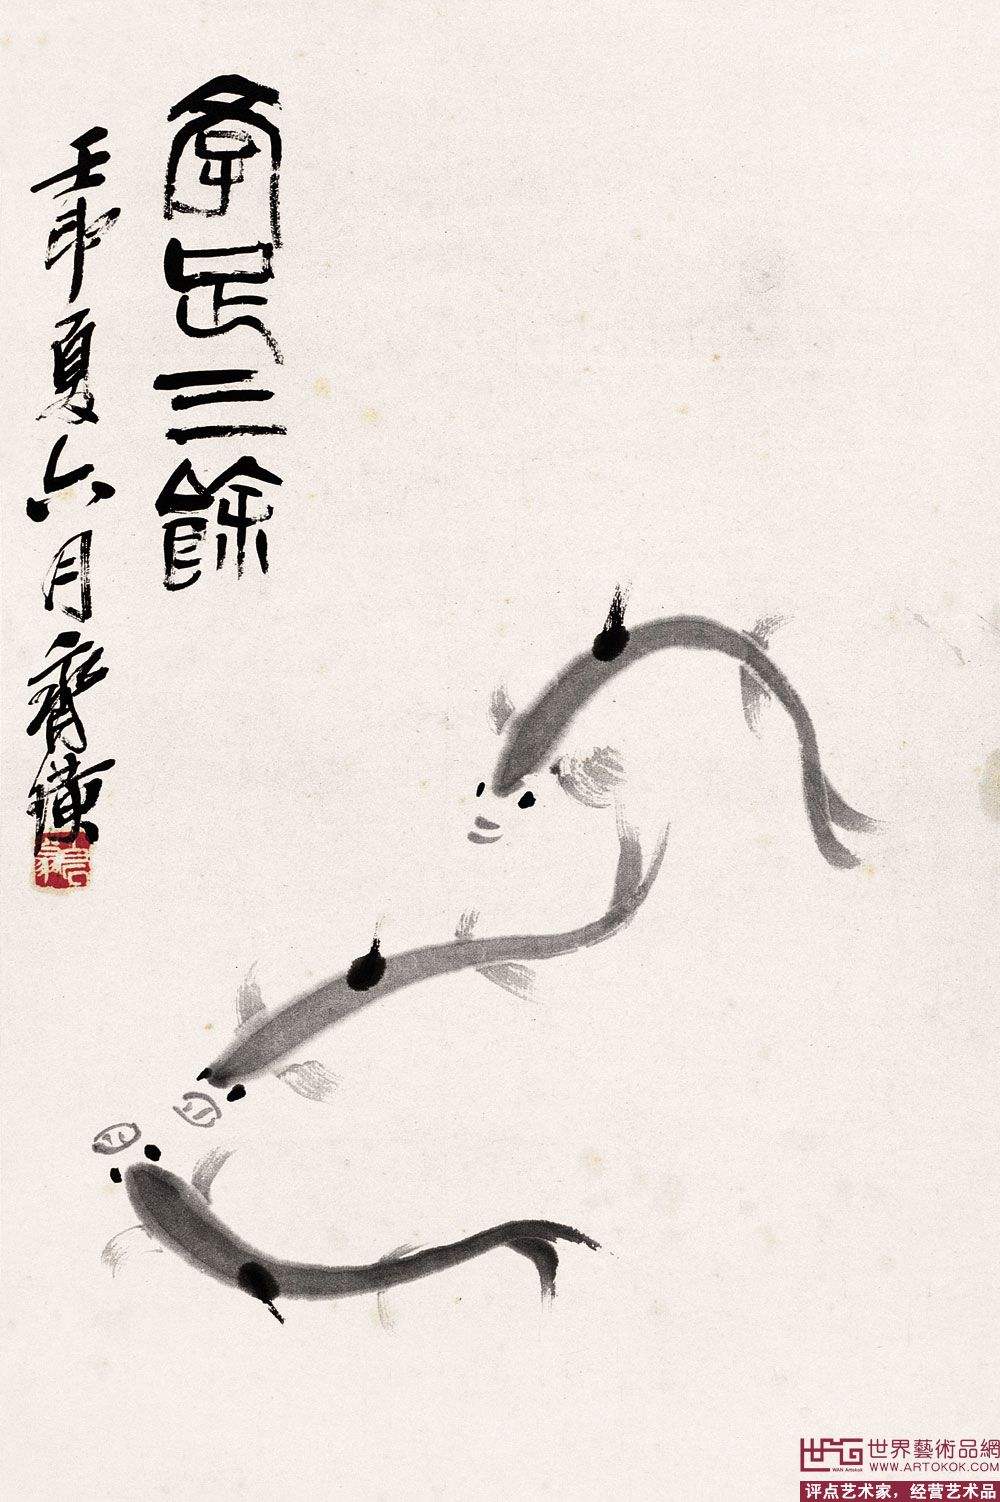 學足三餘
壬申夏六月齊璜
世界藝術品網
WAN Artokok
WWW.ARTOKOK.COM
评点艺术家，经营艺术品